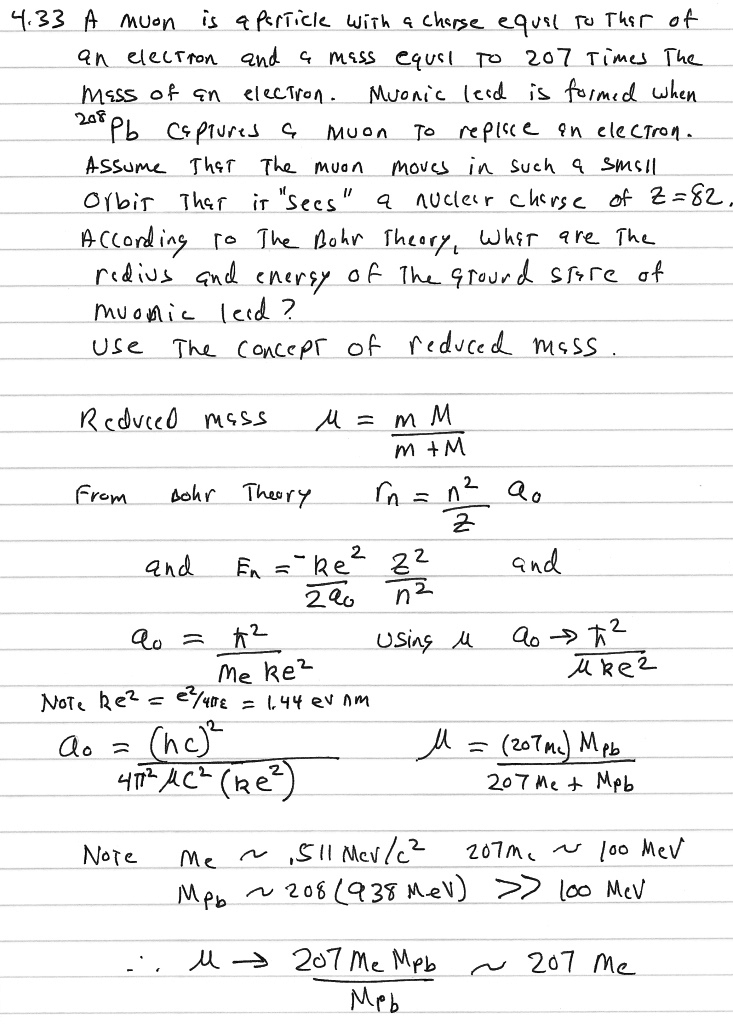 4.33 A muon is a particle with a charge equal to that of
an electron and a mass equal to 207 times the
mass of an electron. Muonic lead is formed when
²⁰⁸Pb captures a muon to replace an electron.
Assume that the muon moves in such a small
orbit that it "sees" a nuclear charge of Z=82.
According to the Bohr theory, what are the
radius and energy of the ground state of
muonic lead?
Use the concept of reduced mass.
Reduced mass μ = mM/(m+M)
From Bohr Theory rₙ = n²/Z a₀
and Eₙ = -ke²/2a₀ Z²/n² and
a₀ = ħ²/(me ke²) using μ a₀ → ħ²/(μke²)
Note ke² = e²/4πε = 1.44 eV nm
a₀ = (hc)²/(4π² μc² (ke²)) μ = (207me) MPb/(207 me + MPb)
Note me ~ .511 MeV/c² 207me ~ 100 MeV
MPb ~ 208(938 MeV) >> 100 MeV
∴ μ → 207 me MPb/MPb ~ 207 me